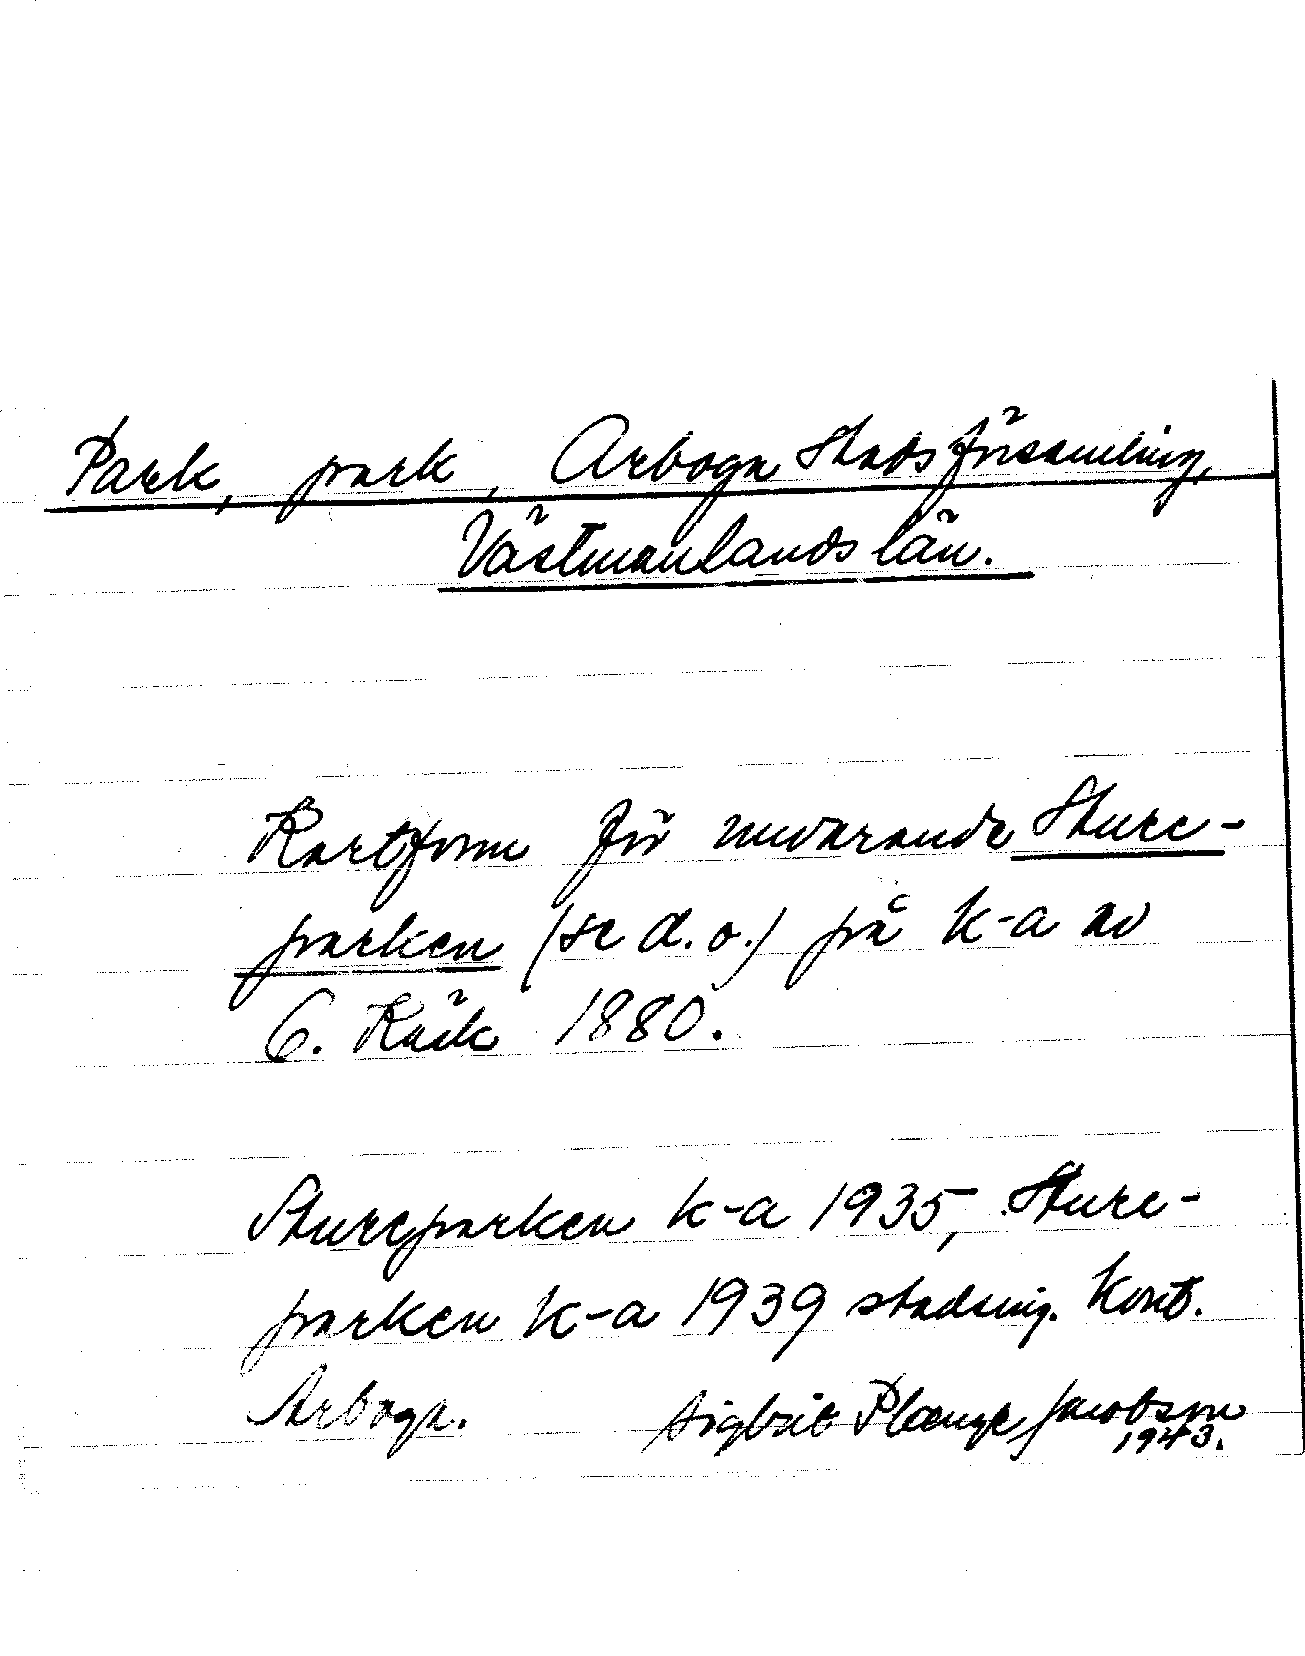 Park, park, Arboga Stadsförsamling,
Västmanlands län.
Kartform för nuvarande Sture-
parken (se d.o.) på k-a av
G. Kääk 1880.
Stureparken k-a 1935, Sture-
parken k-a 1939 stadsing. kont.
Arboga. Sigbrit Plænge Jacobson
1943.